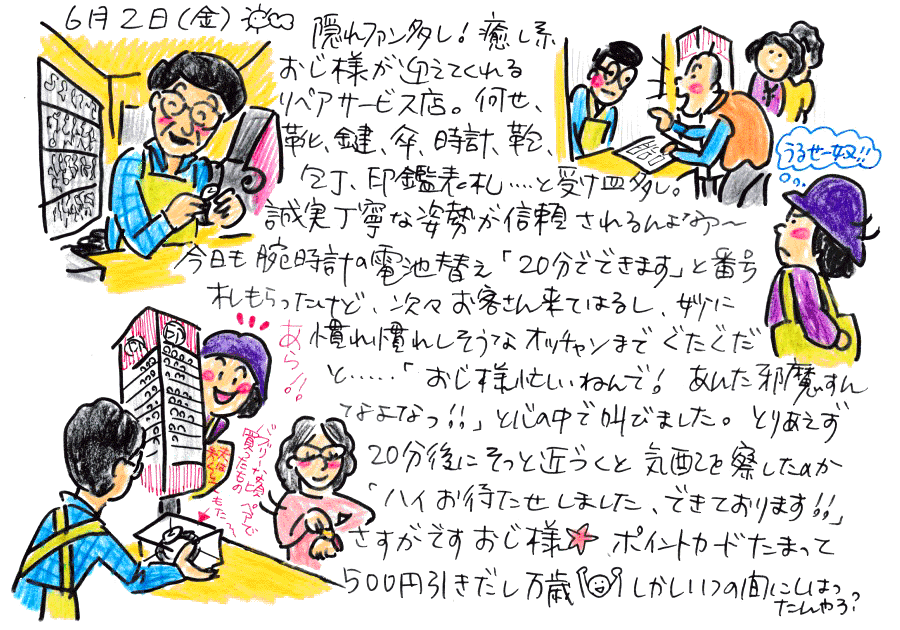 6月2日(金)
隠れファン多し！癒し系
おじ様が迎えてくれる
リペアサービス店。何せ、
靴、鍵、傘、時計、鞄、
包丁、印鑑表札‥‥と受け皿多し。
誠実丁寧な姿勢が信頼されるんよなぁ〜
今日も腕時計の電池替え「20分でできます」と番号
札もらったけど、次々お客さん来てはるし、妙に
慣れ慣れしそうなオッチャンまでぐだぐだ
と‥‥‥「おじ様忙しいねんで！あんた邪魔すん
なよなっ!!」と心の中で叫びました。とりあえず
20分後にそっと近づくと気配を察したのか
「ハイお待たせしました、できております!!」
さすがですおじ様 ポイントカードたまって
500円引きだし万歳 しかしいつの間にしはっ
たんやろ?
うるせー奴!!
あら!!
印
バブリーな時代
ペアで
買ったもの